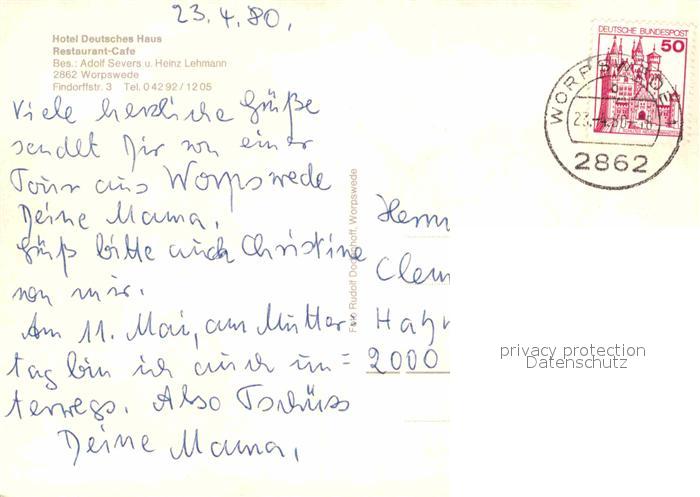 23.4.80.
Hotel Deutsches Haus
Restaurant-Cafe
Bes.: Adolf Severs u. Heinz Lehmann
2862 Worpswede
Findorffstr. 3 Tel. 0 42 92 / 12 05
Viele herzliche Grüße
sendet Dir von einer
Tour aus Worpswede
Deine Mama.
Grüß bitte auch Christine
von mir.
Am 11. Mai, am Mutter-
tag bin ich auch un=
terwegs. Also Tschüss
Deine Mama.
Foto Rudolf Dodenhoff, Worpswede
DEUTSCHE BUNDESPOST
50
WORPSWEDE
23.-4.80
2862
Herrn
Clem
Hahn
2000
privacy protection
Datenschutz